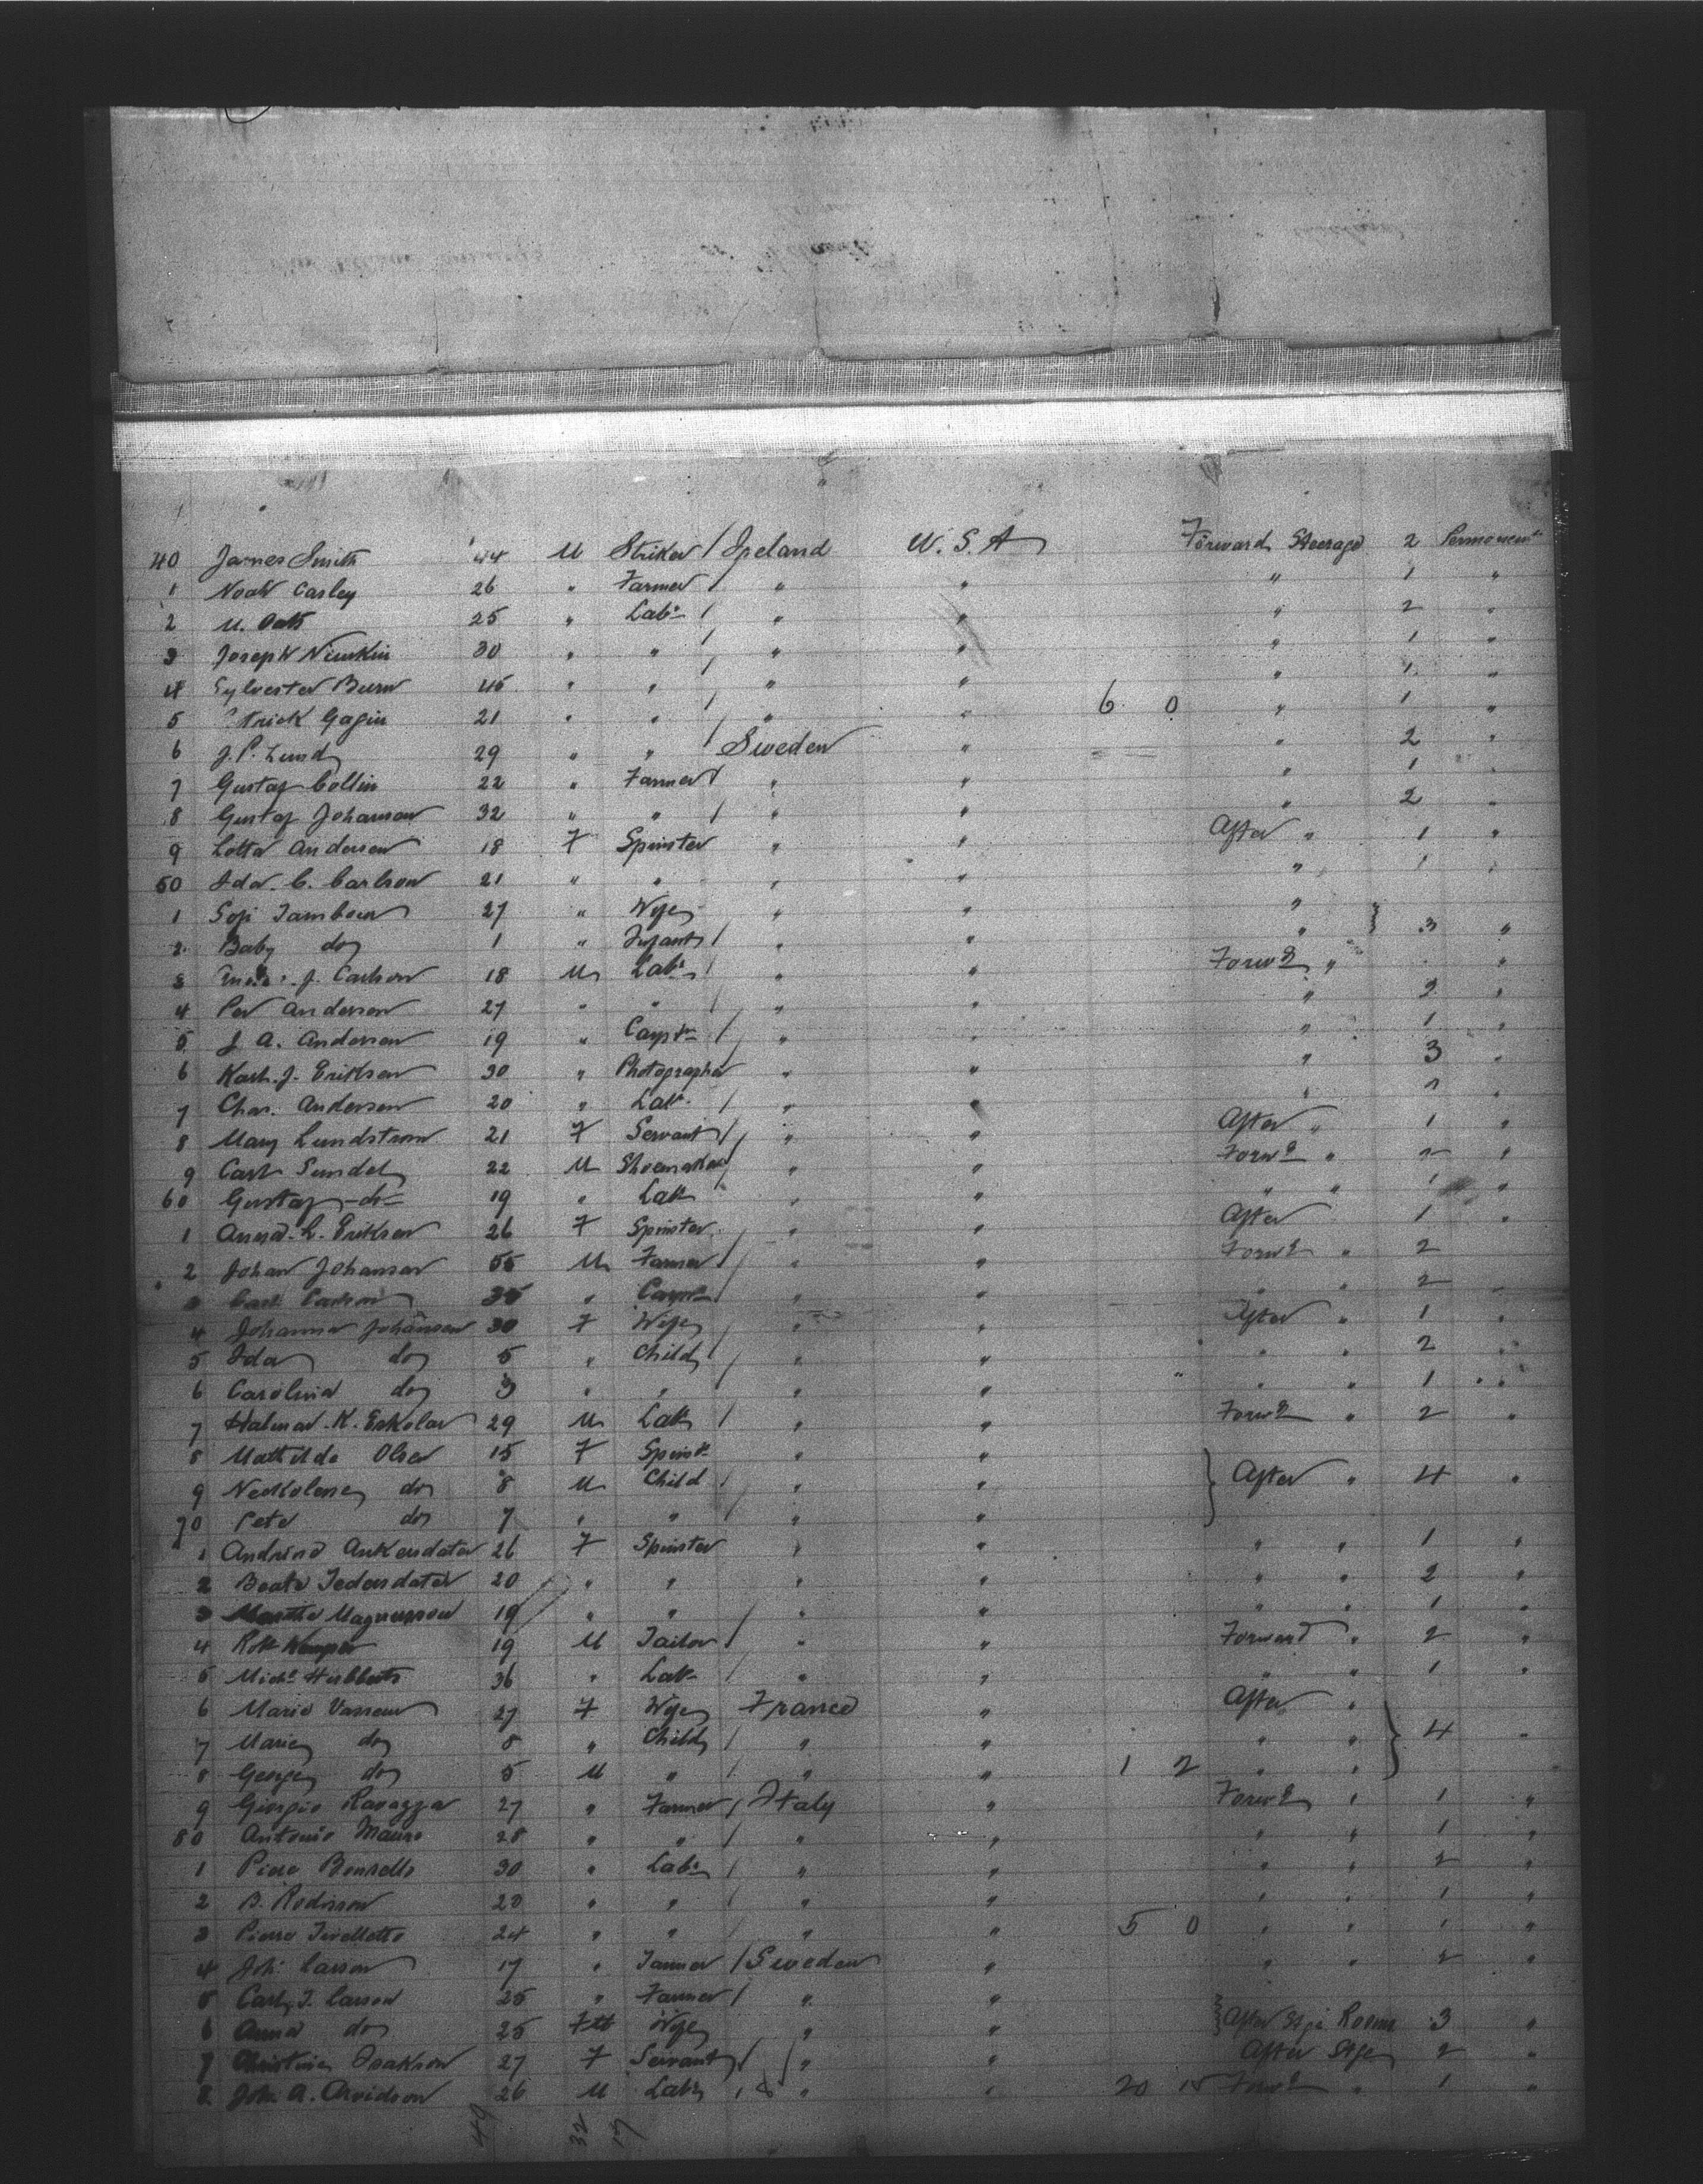 40 James Smith 44 M Striker / Ireland U. S. A Forward Steerage 2 Permanent
1 Noah Carley 26 " Farmer / " " " 1 "
2 M. Oats 25 " Labr / " " " 2 "
3 Joseph 30 " " / " " " 1 "
4 Sylvester Burn 45 " " / " " " 1 "
5 Gagin 21 " " / " " 6 0 " 1 "
6 J. P. Lund 29 " " / Sweden " " 2 "
7 Gustaf Collin 22 " Farmer / " " " 1 "
8 Gustaf Johanson 32 " " / " " " 2 "
9 Lotta Anderson 18 F Spinster " " After " 1 "
50 Ida. C. Carlson 21 " " " " " 1 "
1 Sofi Tambour 27 " Wife " " "
2 Baby do 1 " Infant / " " " } 3 "
3 J. Carlson 18 M Labr / " " Forwd " "
4 Per Anderson 27 " " / " " " 2 "
5 J. A. Anderson 19 " Carptr / " " " 1 "
6 Karl. J. Erikson 30 " Photographer " " " 3 "
7 Chas. Anderson 20 " Labr / " " "
8 Mary Lundstrom 21 F Servant / " " After " 1 "
9 Carl Sundel 22 M Shoemaker / " " Forwd " 2 "
60 Gustaf -do- 19 " Labr " " " " 1 "
1 Anna. L. Erikson 26 F Spinster " " After 1 "
2 Johan Johanson 55 M Farmer / " " Forwd " 2
3 Carl Carlson 35 " Carptr / " " " " 2
4 Johanna Johanson 30 F Wife " " After " 1 "
5 Ida do 5 " Child / " " " " 2 "
6 Carolina do 3 " " " " " " 1 "
7 Halmar. K. 29 M Labr / " " Forwd " 2 "
8 Mathilda Olsen 15 F Spinstr " "
9 do 8 M Child / " " } After " 4 "
70 Peter do 7 " " / " "
1 26 F Spinster " " " " 1 "
2 20 " " " " " " 2 "
3 Martha Magnusson 19 " " / " " " " 1 "
4 Robt 19 M Tailor / " " Forward " 2 "
5 Michl 36 " Labr / " " " " 1 "
6 Marie Vasseur 27 F Wife France " After "
7 Marie do 8 " Child / " " " " } 4 "
8 George do 5 M " / " " 1 2 " " "
9 Giorgio Ravazza 27 " Farmer / Italy " Forwd " 1 "
80 Antonio Mauro 28 " " / " " " " 1 "
1 30 " Labr / " " " " 2 "
2 B. 20 " " / " " " " 1 "
3 24 " " / " " 5 0 " " 1 "
4 Joh. Larson 17 " / Sweden " " " 2 "
5 Carl. J. Larson 25 " Farmer / " "
6 Anna do 25 F Wife " " } After Stge Room 3 "
7 Christine Isakson 27 F Servant / " " After Stge 2 "
8 Joh. A. Arvidson 26 M Labr / 8 " " 20 15 Forwd " 1 "
49 32 17